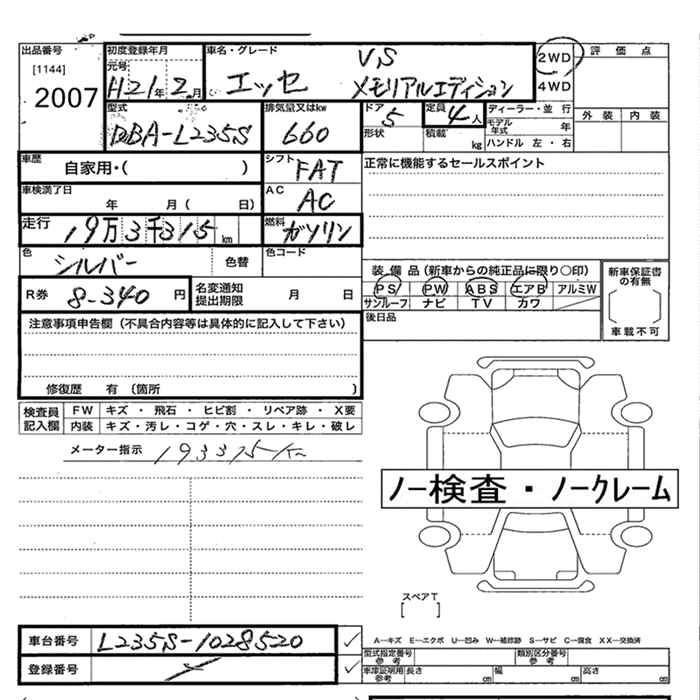 出品番号 初度登録年月 車名・グレード VS 2WD 評価点
[1144] 元号 H21年 2月 エッセ メモリアルエディション 4WD
2007 型式 排気量又はkw ドア 5 定員 4人 ディーラー・並行 外装 内装
DBA-L235S 660 形状 積載 kg モデル年式 年
ハンドル 左・右
車歴 自家用・( ) シフト FAT 正常に機能するセールスポイント
車検満了日 年 月( 日) AC AC
走行 19万3千315km 燃料 ガソリン
色 シルバー 色替 色コード
装備品(新車からの純正品に限り○印) 新車保証書の有無
R券 8-340円 名変通知提出期限 月 日 PS PW ABS エアB アルミW
サンルーフ ナビ TV カワ
注意事項申告欄(不具合内容等は具体的に記入して下さい) 後日品 車載不可
修復歴 有(箇所 )
検査員記入欄 FW キズ・飛石・ヒビ割・リペア跡・X要
内装 キズ・汚レ・コゲ・穴・スレ・キレ・破レ
メーター指示 193375km
ノー検査・ノークレーム
スペアT
[ ]
車台番号 L235S-1028520
A―キズ E―エクボ U―凹み W―補修跡 S―サビ C―腐食 XX―交換済
登録番号
型式指定番号 参考 類別区分番号 参考
車庫証明用 参考 長さ cm 幅 cm 高さ cm